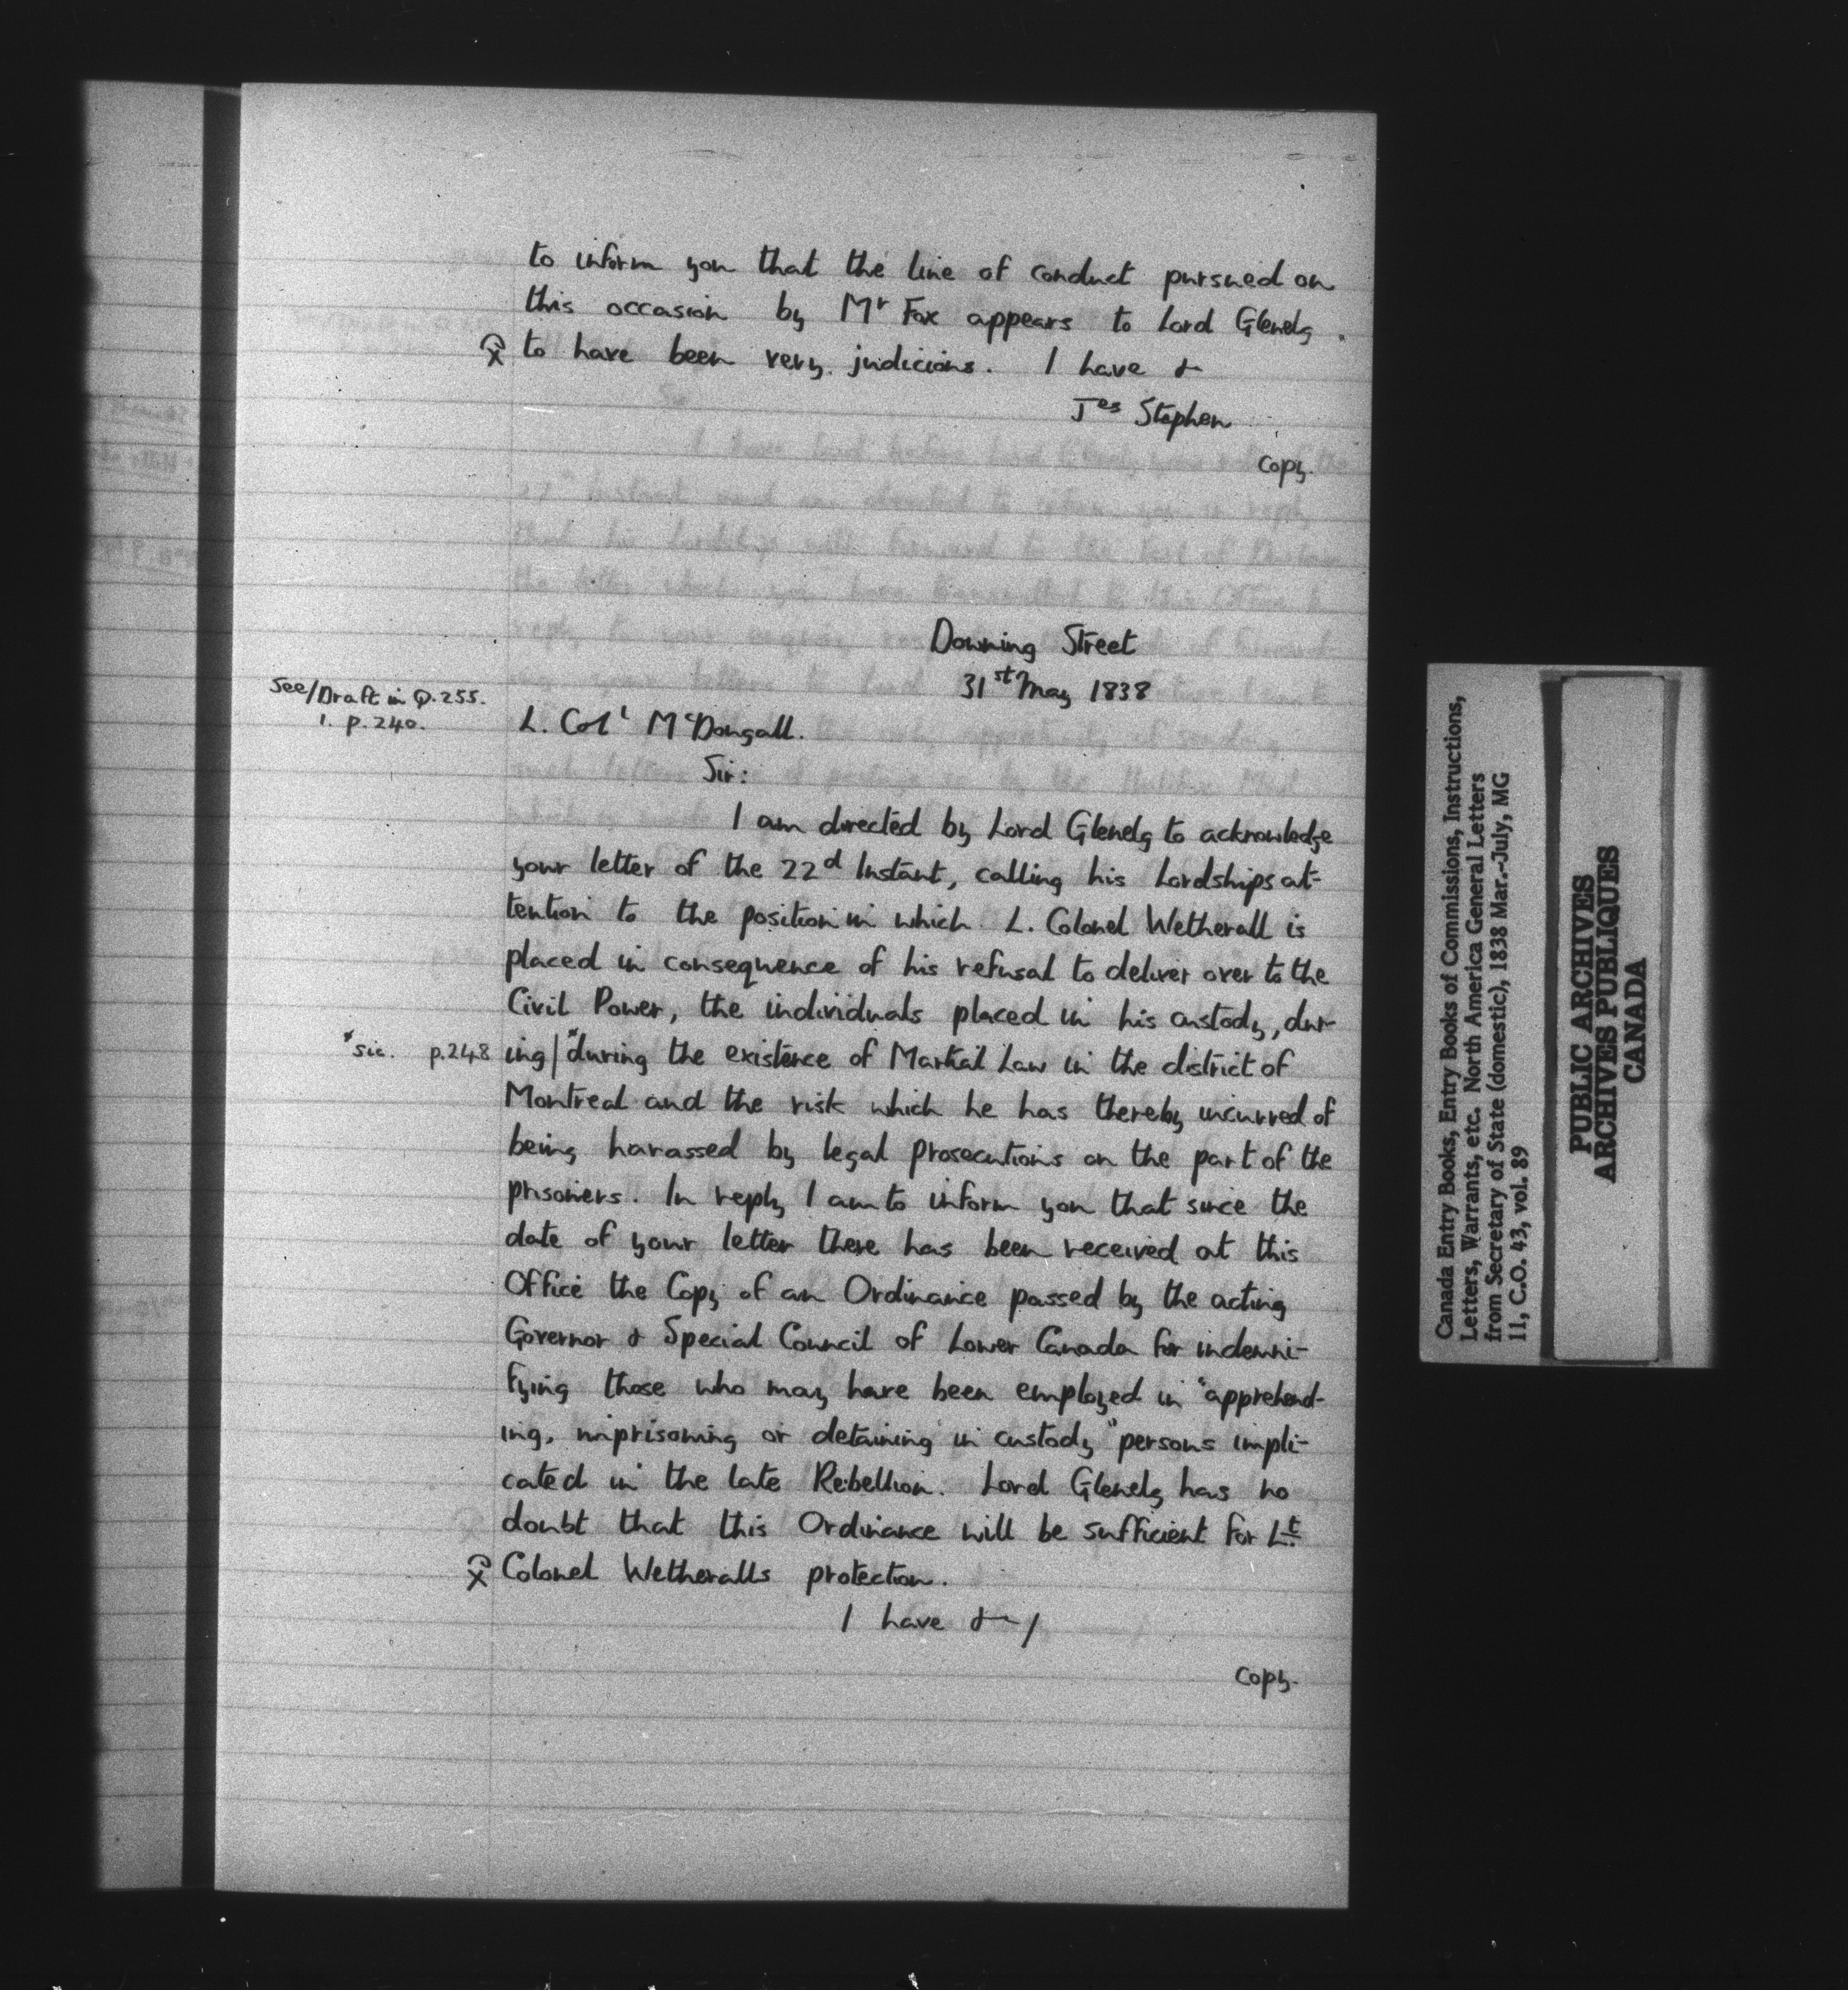 to inform you that the line of conduct pursued on
this occasion by Mr Fox appears to Lord Glenelg.
to have been very judicious. I have &
Jes Stephen
Copy.
Downing Street
31st May 1838
See/Draft in Q.255.
1. p.240.
L. Col l McDougall.
Sir:
I am directed by Lord Glenelg to acknowledge
your letter of the 22d Instant, calling his Lordships at-
tention to the position in which L. Colonel Wetherall is
placed in consequence of his refusal to deliver over to the
Civil Power, the individuals placed in his custody, dur-
*sic. p.248 ing/*during the existence of Martial Law in the district of
Montreal and the risk which he has thereby incurred of
being harassed by legal prosecutions on the part of the
prisoners. In reply I am to inform you that since the
date of your letter there has been received at this
Office the Copy of an Ordinance passed by the acting
Governor & Special Council of Lower Canada for indemni-
fying those who may have been employed in "apprehend-
ing, imprisoning or detaining in custody" persons impli-
cated in the late Rebellion. Lord Glenelg has no
doubt that this Ordinance will be sufficient for Lt
Colonel Wetheralls protection.
I have &/
Copy.
Canada Entry Books, Entry Books of Commissions, Instructions,
Letters, Warrants, etc. North America General Letters
from Secretary of State (domestic), 1838 Mar.-July, MG
11, C.O. 43, vol. 89
PUBLIC ARCHIVES
ARCHIVES PUBLIQUES
CANADA